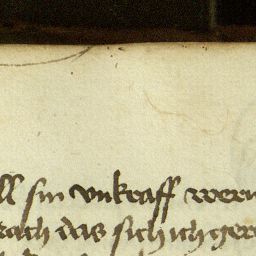 ll sin vnkrafft wern
rach das sich ich ger